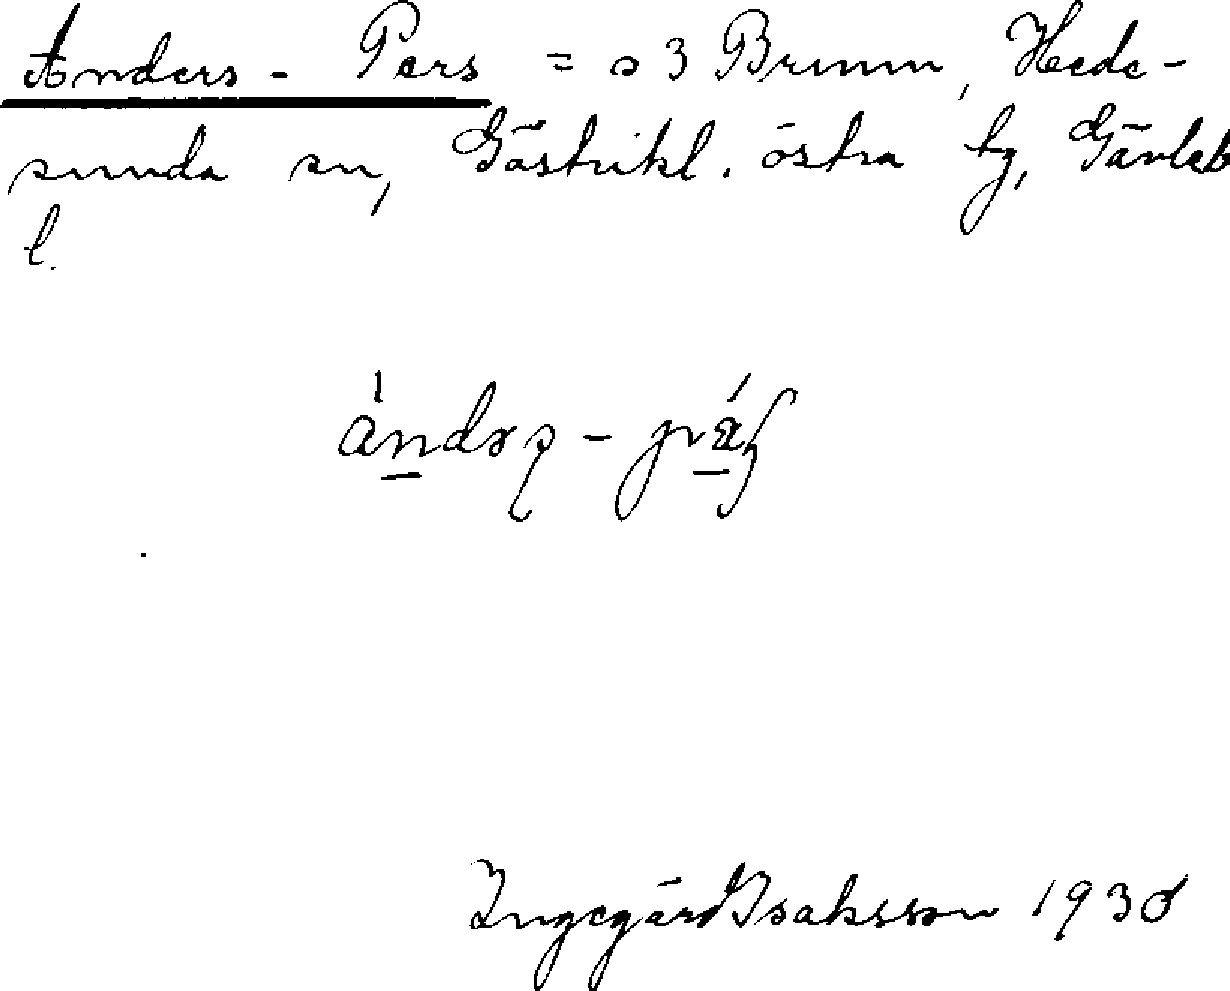 Anders - Pers = s 3 Brunn, Hede-
sunda sn, Gästrikl. östra tg, Gävleb
l.
Ingegärd Isaksson 1930